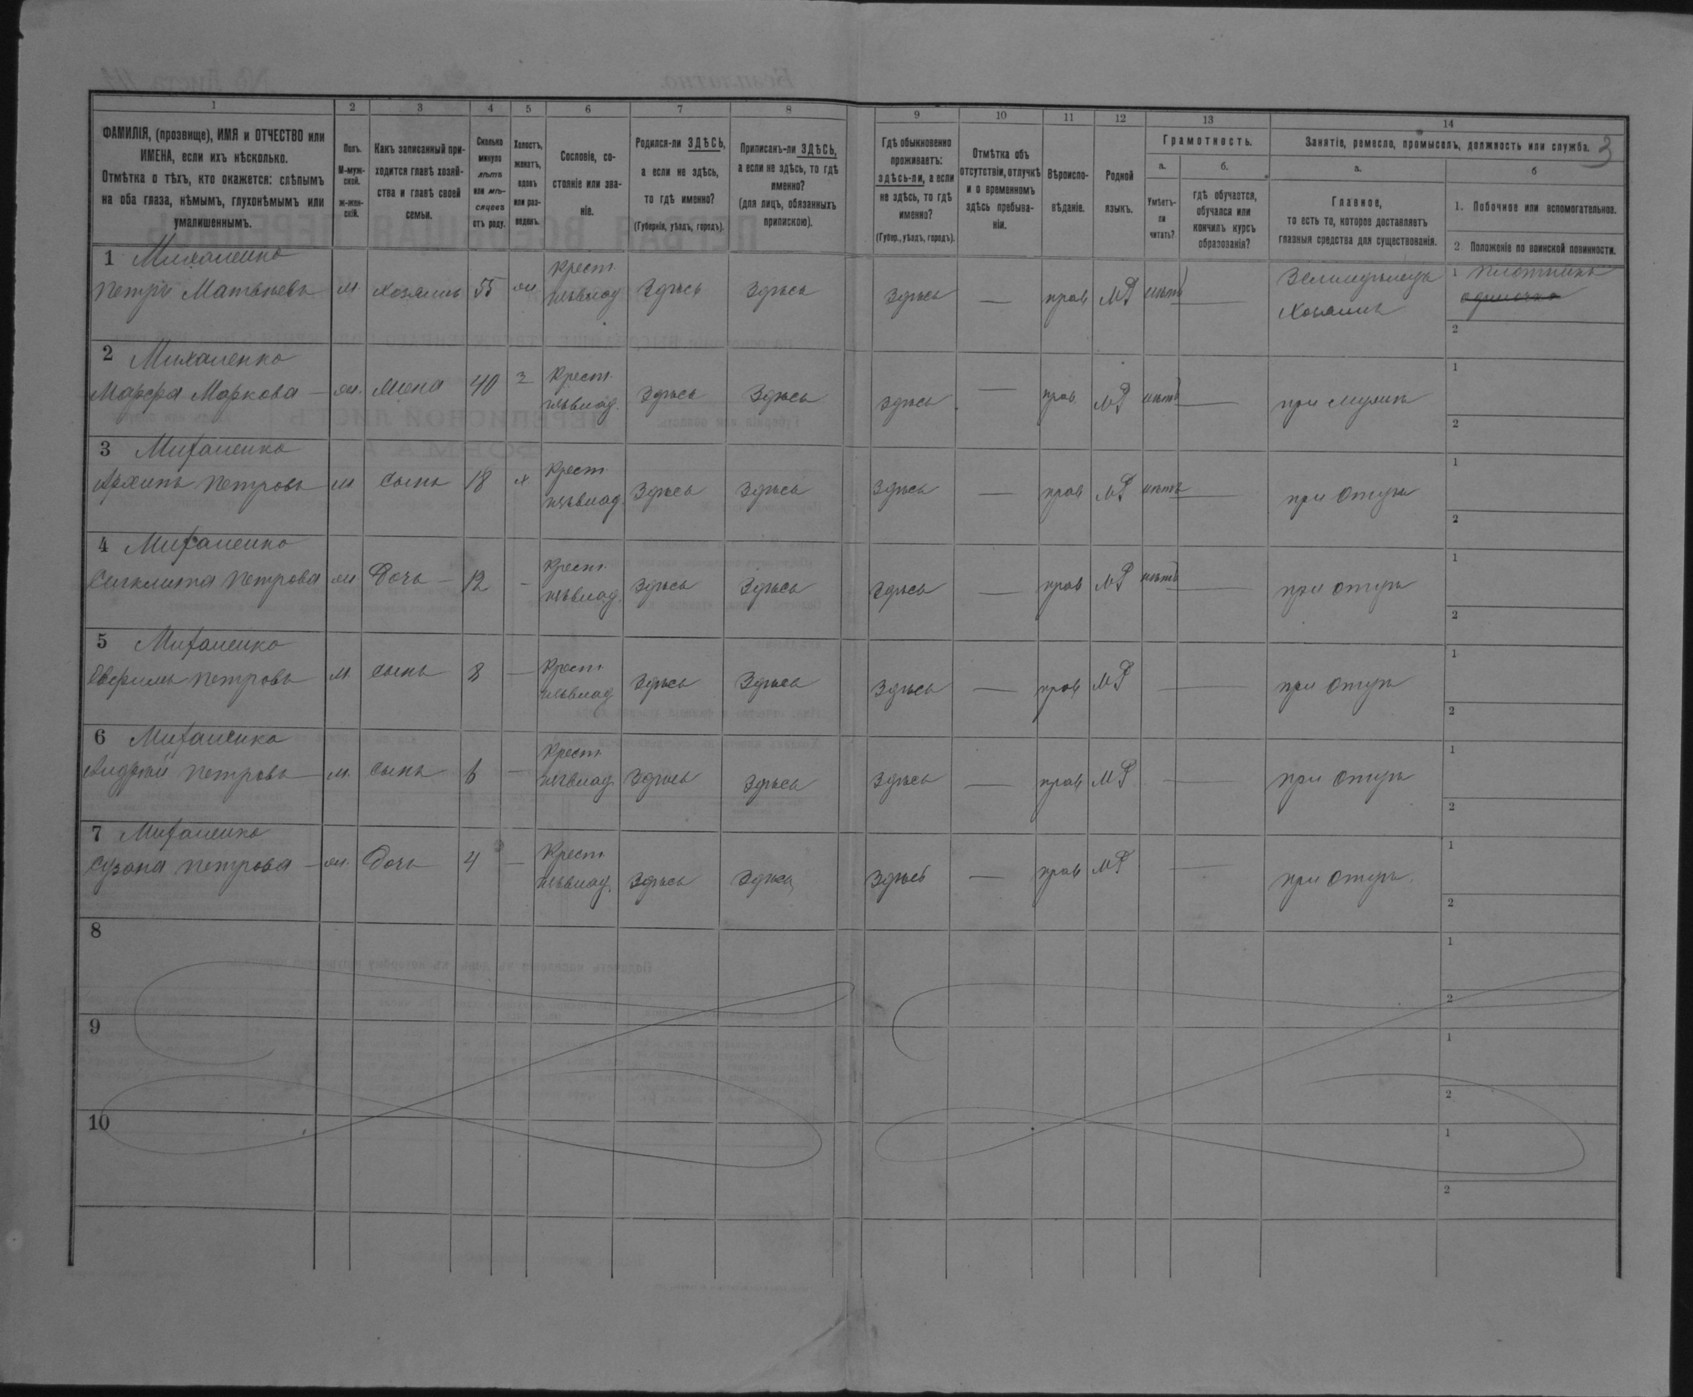 1 2 3 4 5 6 7 8 9 10 11 12 13 14
3
ФАМИЛІЯ, (прозвище), ИМЯ и ОТЧЕСТВО или
ИМЕНА, если ихъ нѣсколько.
Отмѣтка о тѣхъ, кто окажется: слѣпымъ
на оба глаза, нѣмымъ, глухонѣмымъ или
умалишеннымъ.
Полъ.
М-муж-
ской.
Ж-жен-
скій.
Какъ записанный при-
ходится главѣ хозяй-
ства и главѣ своей
семьи.
Сколько
минуло
лѣтъ
или мѣ-
сяцевъ
отъ роду.
Холостъ,
женатъ,
вдовъ
или раз-
веденъ.
Сословіе, со-
стояніе или зва-
ніе.
Родился-ли ЗДѢСЬ,
а если не здѣсь,
то гдѣ именно?
(Губернія, уѣздъ, городъ).
Приписанъ-ли ЗДѢСЬ,
а если не здѣсь, то гдѣ
именно?
(для лицъ, обязанныхъ
припискою).
Гдѣ обыкновенно
проживаетъ:
здѣсь-ли, а если
не здѣсь, то гдѣ
именно?
(Губер., уѣздъ, городъ).
Отмѣтка объ
отсутствіи, отлучкѣ
и о временномъ
здѣсь пребыва-
ніи.
Вѣроиспо-
вѣданіе.
Родной
языкъ.
Грамотность.
а.
Умѣетъ-
ли
читать?
б.
гдѣ обучается,
обучался или
кончилъ курсъ
образованія?
Занятіе, ремесло, промыселъ, должность или служба.
а.
Главное,
то есть то, которое доставляетъ
главныя средства для существованія.
б
1. Побочное или вспомогательное.
2 Положеніе по воинской повинности.
1 Михаленко
Петръ Матвѣевъ м хозяинъ 55 ж Крест. Здѣсь Здѣсь Здѣсь — прав М нѣтъ — Земледѣлецъ
Хозяинъ
1 Плотникъ
2
2 Михаленко
Марфа Маркова — ж. жена 40 з Крест. Здѣсь Здѣсь здѣсь — прав. М нѣтъ — при мужѣ
1
2
3 Михаленко
Архипъ Петровъ м сынъ 18 х Крест. Здѣсь Здѣсь Здѣсь — прав М нѣтъ — при отцѣ
1
2
4 Михаленко
Синклита Петрова ж. Дочь — 12 — Крест. Здѣсь Здѣсь Здѣсь — прав М нѣтъ — при отцѣ
1
2
5 Михаленко
Петровъ м сынъ 8 — Крест. Здѣсь Здѣсь Здѣсь — прав М — при отцѣ
1
2
6 Михаленко
Андрей Петровъ — м. сынъ 6 — Крест. Здѣсь Здѣсь Здѣсь — прав М — при отцѣ
1
2
7 Михаленко
Петрова — ж. Дочь 4 — Крест. Здѣсь Здѣсь Здѣсь — прав М — при отцѣ.
1
2
8
1
2
9
1
2
10
1
2